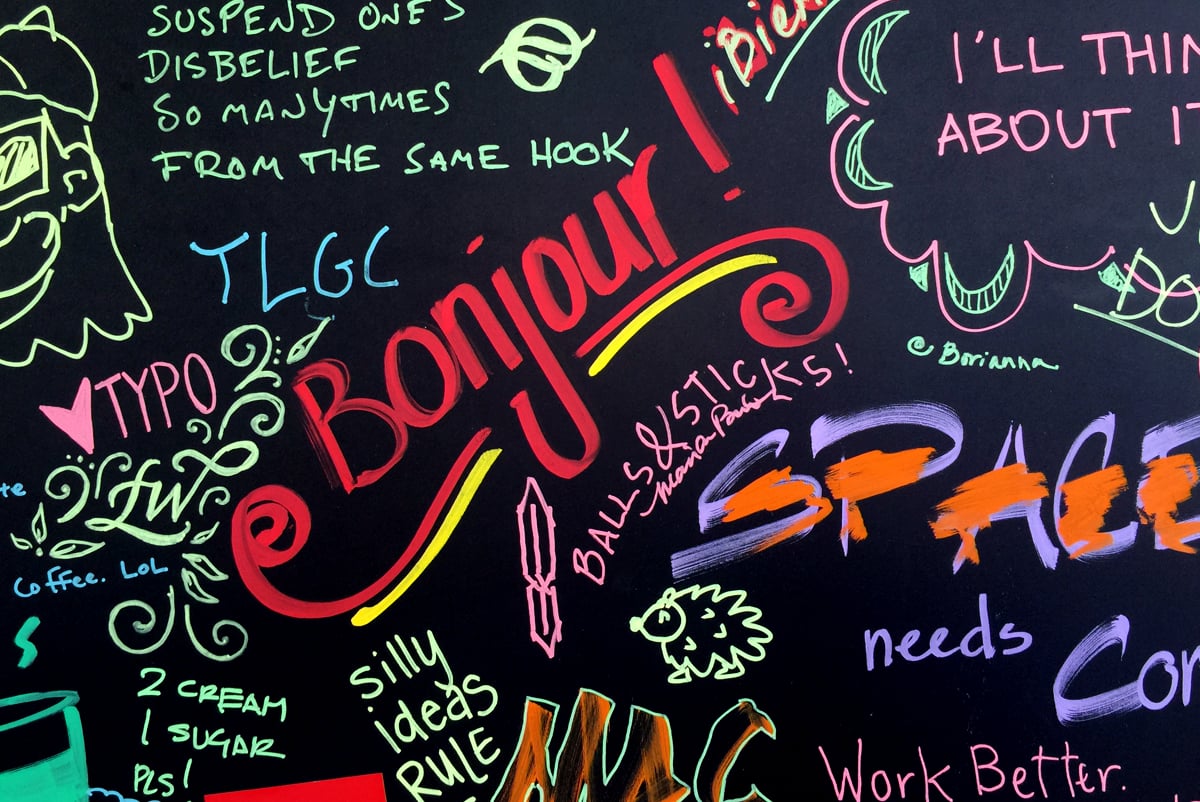 SUSPEND ONE'S
DISBELIEF
SO MANY TIMES
FROM THE SAME HOOK
¡Bien
I'LL THIN
ABOUT IT
TLGC
Bonjour!
DO
@Borianna
TYPO
BALLS & STICKS!
LW
SPACE
te
Coffee. LOL
S
2 CREAM
1 SUGAR
PLS!
silly
ideas
RULE
needs
Con
Work Better.